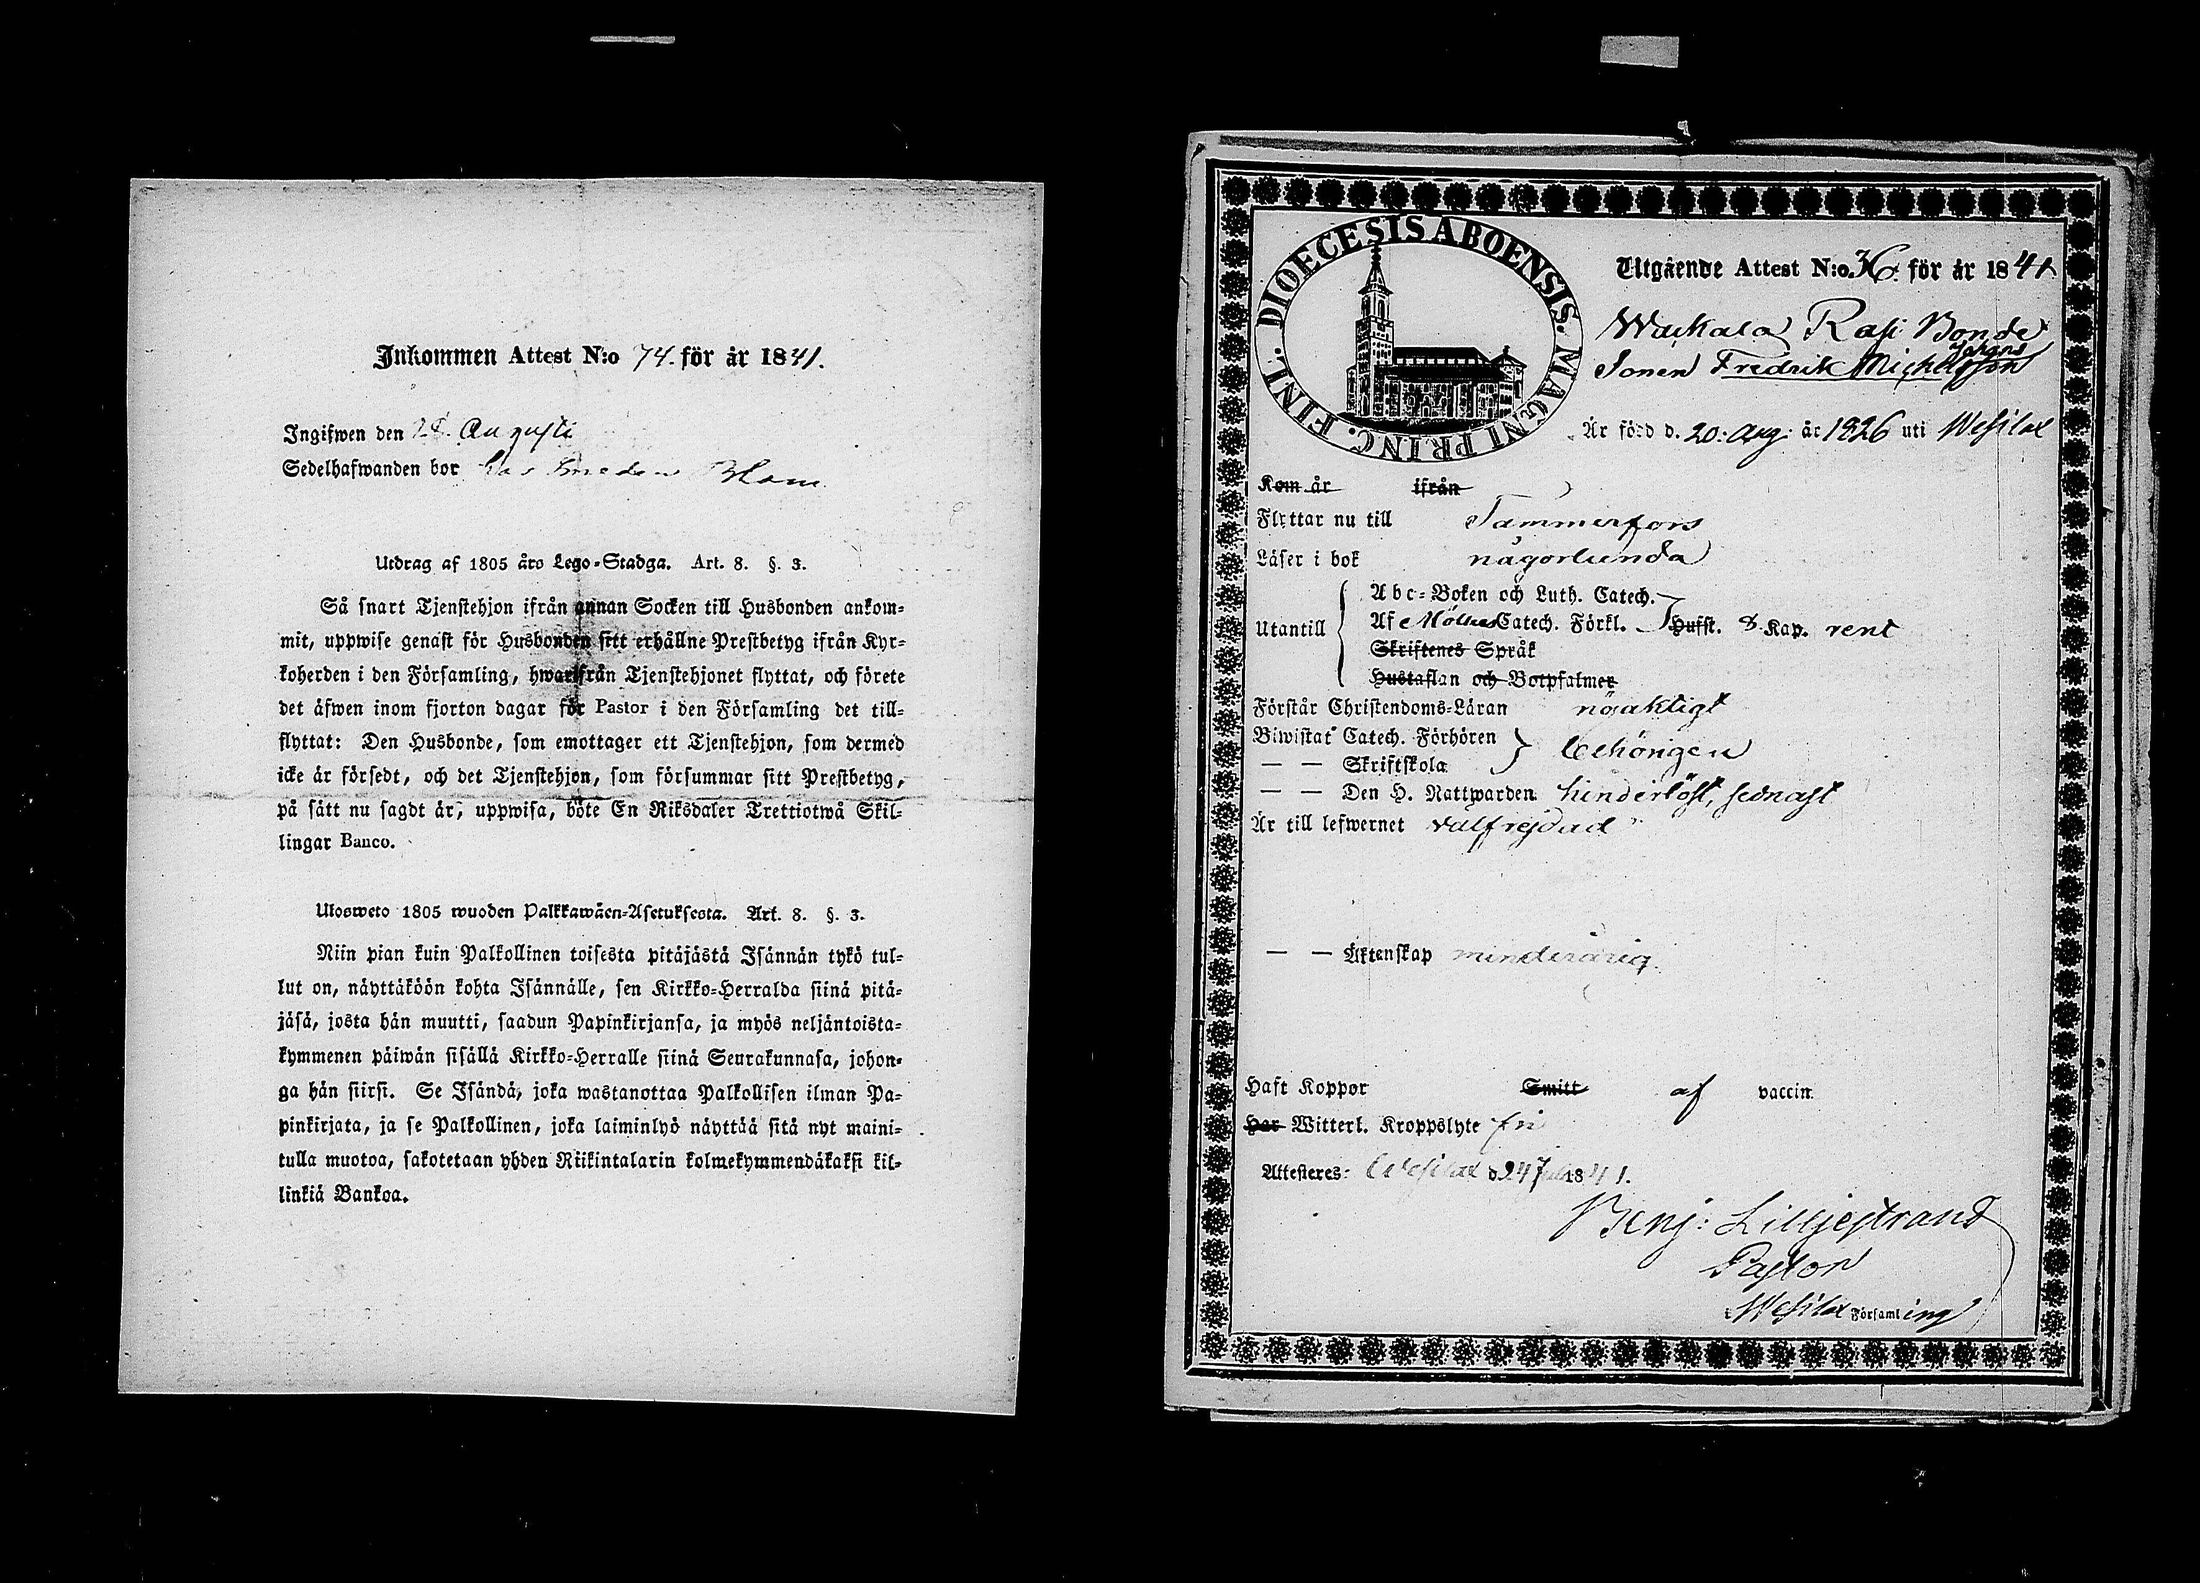 Inkommen Attest N:o 74. för år 1841.
Ingifwen den 28. Augusti
Sedelhafwanden bor hos Smeden Blom
Utdrag af 1805 års Lego-Stadga. Art. 8. §. 3.
Så snart Tjenstehjon ifrån annan Socken till Husbonden ankom-
mit, uppwise genast för Husbonden sitt erhållne Prestbetyg ifrån Kyr-
koherden i den Församling, hwarifrån Tjenstehjonet flyttat, och förete
det äfwen inom fjorton dagar för Pastor i den Församling det till-
flyttat: Den Husbonde, som emottager ett Tjenstehjon, som dermed
icke är försedt, och det Tjenstehjon, som försummar sitt Prestbetyg,
på sätt nu sagdt är, uppwisa, böte En Riksdaler Trettiotwå Skil-
lingar Banco.
Ulosweto 1805 wuoden Palkkawäen-Asetuksesta. Art. 8. §. 3.
Niin pian kuin Palkollinen toisesta pitäjästä Isännän tykö tul-
lut on, näyttäköön kohta Isännälle, sen Kirkko-Herralda siinä pitä-
jäsä, josta hän muutti, saadun Papinkirjansa, ja myös neljäntoista-
kymmenen päiwän sisällä Kirkko-Herralle siinä Seurakunnasa, johon-
ga hän siirsi. Se Isändä, joka wastanottaa Palkollisen ilman Pa-
pinkirjata, ja se Palkollinen, joka laiminlyö näyttää sitä nyt maini-
tulla muotoa, sakotetaan yhden Riikintalarin kolmekymmendäkaksi kil-
linkiä Bankoa.
DIOECESIS ABOENSIS. MAGNI PRINC. FINL.
Utgående Attest N:o 36. för år 1841
Wackala Rasi Bonde
Sonen Fredrik Michelsson Johans
Är född d. 20: Aug: år 1826 uti Wesilax
Kom år ifrån
Flyttar nu till Tammerfors
Läser i bok någorlunda
Utantill
Abc-Boken och Luth. Catech.
Af Möllers Catech. Förkl. Hufst. 8 Kap. rent
Skriftenes Språk
Hustaflan och Botpsalmer
Förstår Christendoms-Läran nöjaktigt
Biwistat Catech. Förhören
— — Skriftskola behörigen
— — Den H. Nattwarden hinderlöst, sednast
Är till lefwernet välfrejdad
— — Äktenskap minderårig.
Haft Koppor Smitt af vaccin
Har Witterl. Kroppslyte fri
Attesteras: Wesilax d 24 Juli 1841.
Benj: Lilljestrand
Pastor
i Wesilax Församling